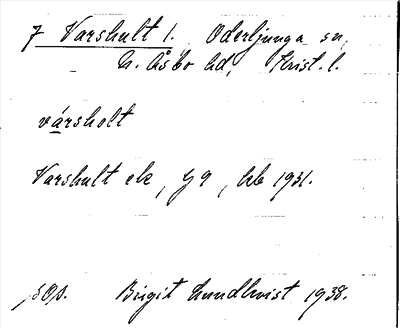 7 Varshult 1. Oderljunga sn,
N. Åsbo hd, Krist. l.
vársholt
Varshult ek, G 9, hb 1931.
sOs. Birgit Lundkvist 1938.